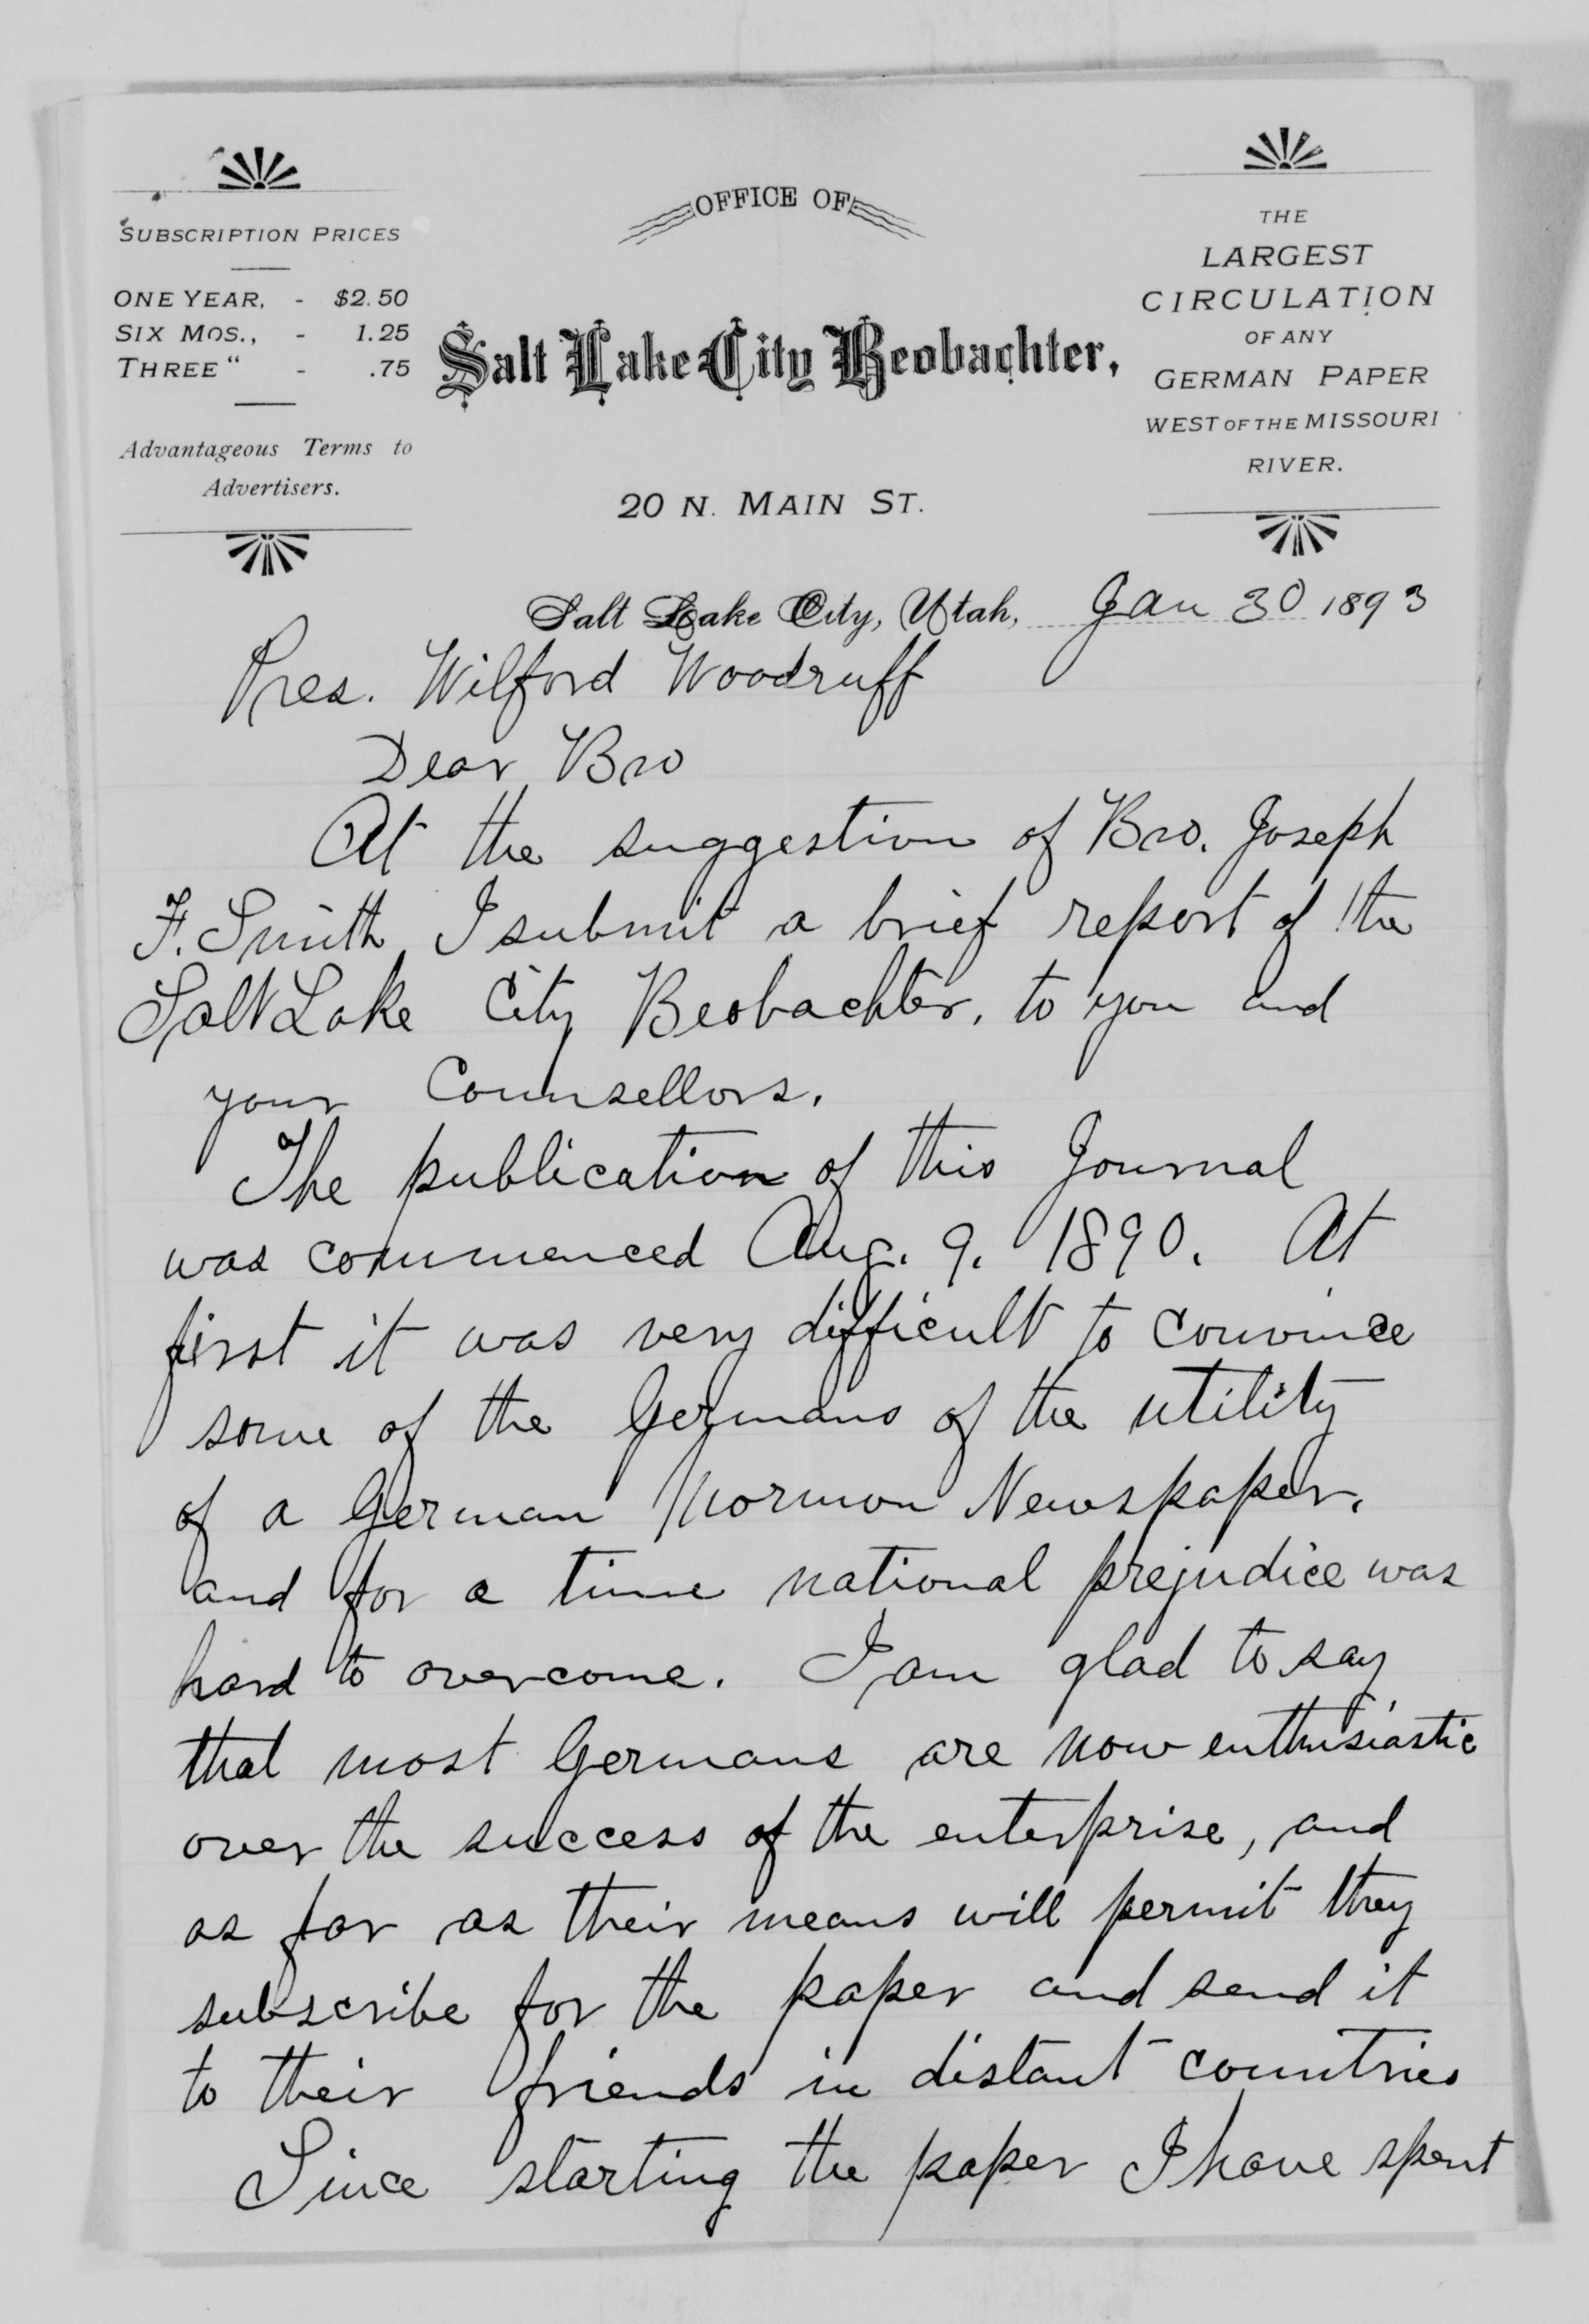 SUBSCRIPTION PRICES
ONE YEAR, - $2.50
SIX MOS., - 1.25
THREE " - .75
Advantageous Terms to
Advertisers.
OFFICE OF
Salt Lake City Beobachter,
20 N. MAIN ST.
THE
LARGEST
CIRCULATION
OF ANY
GERMAN PAPER
WEST OF THE MISSOURI
RIVER.
Salt Lake City, Utah, Jan 30 1893
Pres. Wilford Woodruff
Dear Bro
At the suggestion of Bro. Joseph
F. Smith, I submit a brief report of the
Salt Lake City Beobachter, to you and
your Counsellors.
The publication of this Journal
was commenced Aug. 9. 1890. At
first it was very difficult to convince
some of the Germans of the utility
of a German Mormon Newspaper,
and for a time national prejudice was
hard to overcome. I am glad to say
that most Germans are now enthusiastic
over the success of the enterprise, and
as far as their means will permit they
subscribe for the paper and send it
to their friends in distant countries
Since starting the paper I have spent